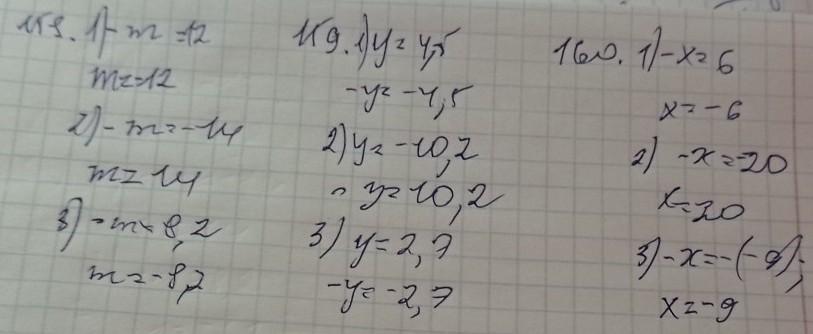 158. 1) - m = 12
m = -12
2) - m = -14
m = 14
3) - m = 8,2
m = -8,2
159. 1) y = 4,5
-y = -4,5
2) y = -10,2
- y = 10,2
3) y = 2,7
-y = -2,7
160. 1) -x = 6
x = -6
2) -x = -20
x = 20
3) -x = -(-9);
x = -9